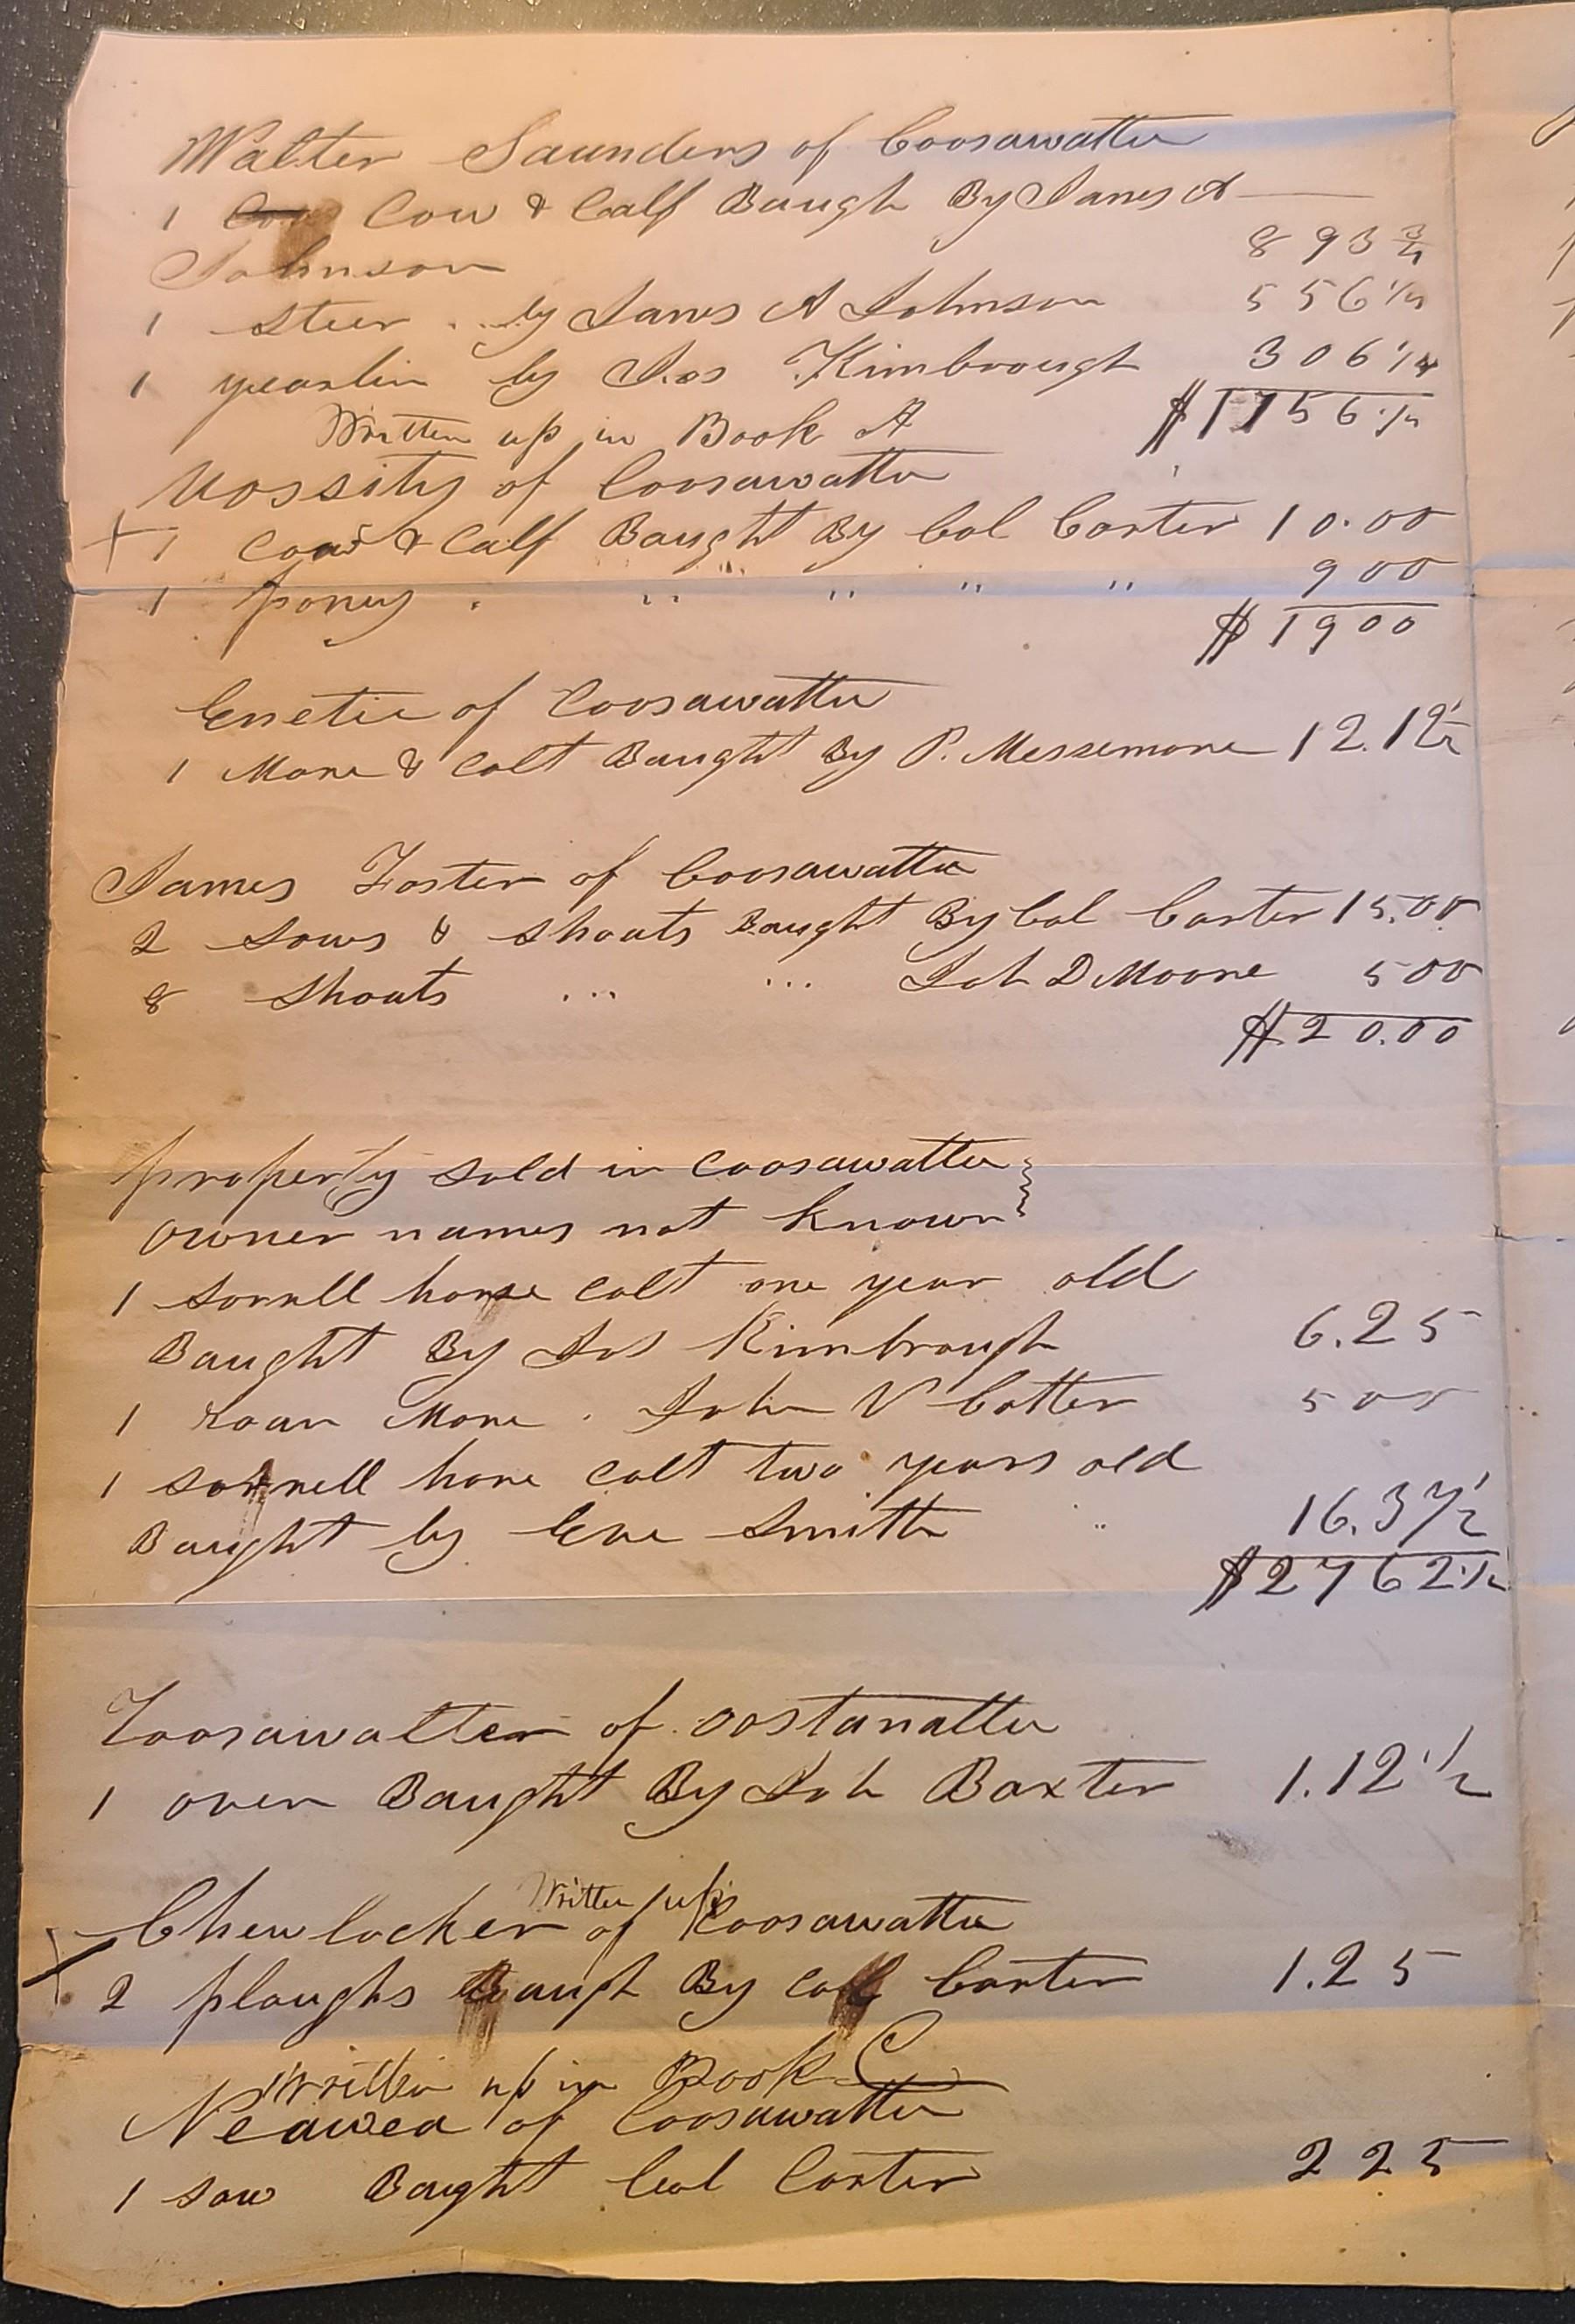 Walter Saunders of Coosawattee
1 Cow Cow & Calf Baugh By James A
Johnson 8 93 3/4
1 Steer by James A Johnson 5 56 1/4
1 yearlin by Jos Kimbrough 3 06 1/4
Written up in Book A $17 56 1/4
Nossity of Coosawattee
+ 1 Cow & Calf Baught By Col Carter 10.00
1 poney . " " " " 9 00
$19 00
Enetie of Coosawattee
1 Mare & Colt Baught By P. Messemore 12.12 1/2
James Foster of Coosawattee
2 Sows & Shoats Baught By Col Carter 15.00
8 Shoats ... ... Joh D Moore 5 00
$20.00
property sold in Coosawattee
owner names not known
1 Sorrell horse colt one year old
Baught By Jos Kimbrough 6.25
1 Roan Mare . John V Cotter 5 00
1 Sorrell horse colt two years old
Baught by Smith 16.37 1/2
$27 62 1/2
Toosawaltee of Oostanattee
1 oven Baught By Joh Baxter 1.12 1/2
Written up
x Chewlocker of Coosawattee
2 ploughs Baugh By Col Carter 1.25
Written up in Book C
Neawea of Coosawattee
1 Sow Baught Col Carter 2 25